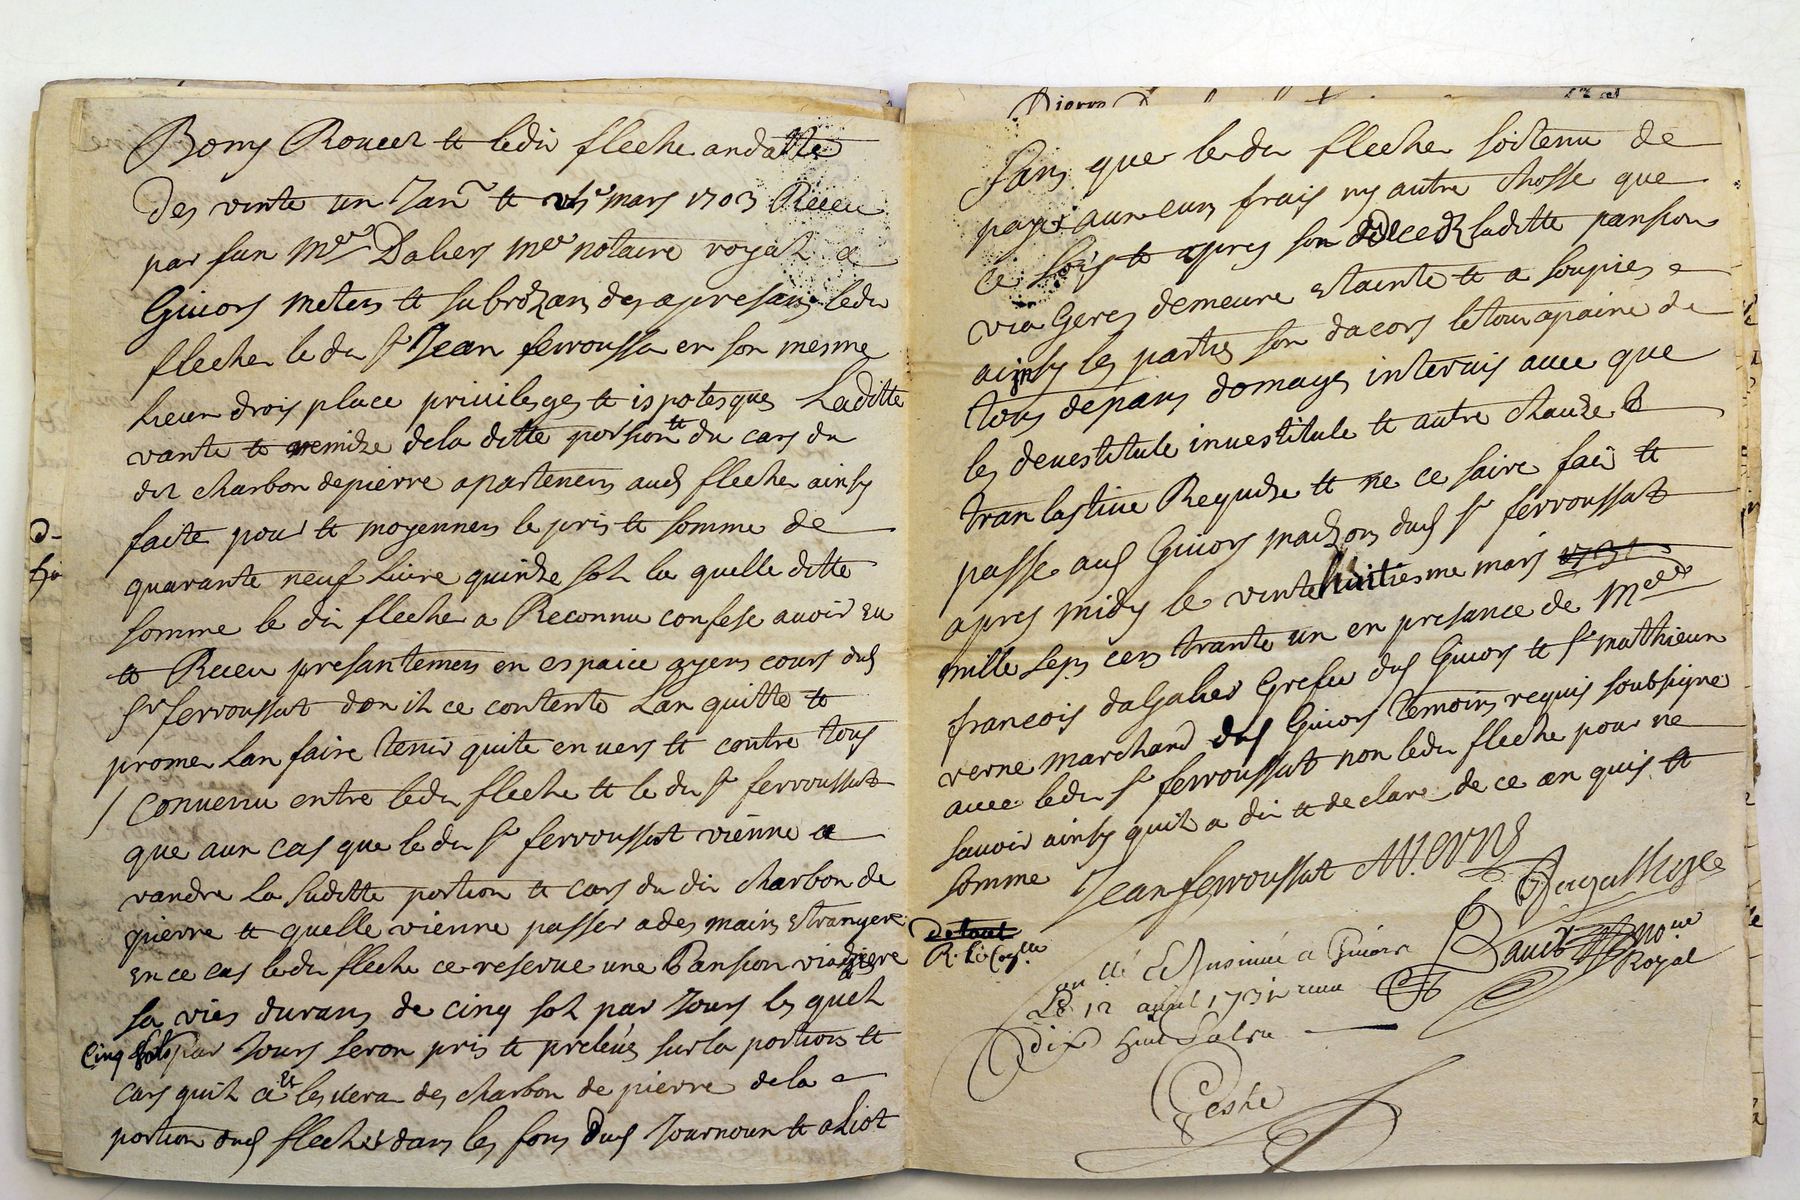 Bony Roucer et ledi fleche andatte
des vinte un Jan et mars 1703 Receu
par fun Dalies notaire royal a
Giuors meten et subrozan des apresans ledi
fleche le du Sr Jean ferroussa en son mesme
Lieun drois place priuileges et ispotesques Laditte
vante et remize dela ditte portion et du cars du
dit charbon depierre apartenens aud flecher ainsy
faite pour et moyennen le pris et somme de
quarante neuf Liure quinze sol la quelle ditte
somme le di flecher a Reconnu confese auoir eu
et Receu presantemen en espaice ayens cours dud
Sr ferroussat don il ce contente Lan quitte et
promer Lan faire tenir quite enuers et contre tous
/ Conuenu entre ledi fleche et le du Sr ferroussat
que aun cas que le du Sr ferroussat viénne a
vandre la suditte portion et cars du di charbon de
pierre et quelle viénne passer a des mains estrangere
en ce cas ledu fleche ce reserue une Pansion viagere
sa vies durans de cinq sol par Jours les quel
Cinq sols par Jours seron pris et preleués sur la portion et
cars quil ce les uera des charbon de pierre dela
portion dud flecher dans les fons dud Journoun et aliot
sans que ledu flecher soitenu de
paye aun cuns frais ny autre chosse que
ce sois et apres son decedz laditte pansion
via Geres demeure estainte et a soupies
ainsy les parties son dacors letour apaine de
tous depans domages interais auec que
les deuestitule inuestitule et autre clauze
translastiue Requize et ne ce faire fait et
passe aud Giuors maizon dud Sr ferroussat
apres midy le vinte huitiesme mars 1731
mille seps cens trante un en presance de
francois daGalier Grefie dud Giuors et Sr matthieun
verne marchand dud Giuors temoins requis soubsigne
auec ledu Sr ferroussat non ledu fleche pour ne
sauoir ainsy quil a di et declare de ce an quis et
somme Jean ferroussat M. VERNE
Dagallier
R. le
Bauit Royal
et Insinué a Giuors
Le 12 auril 1731
dix huit
Peshe